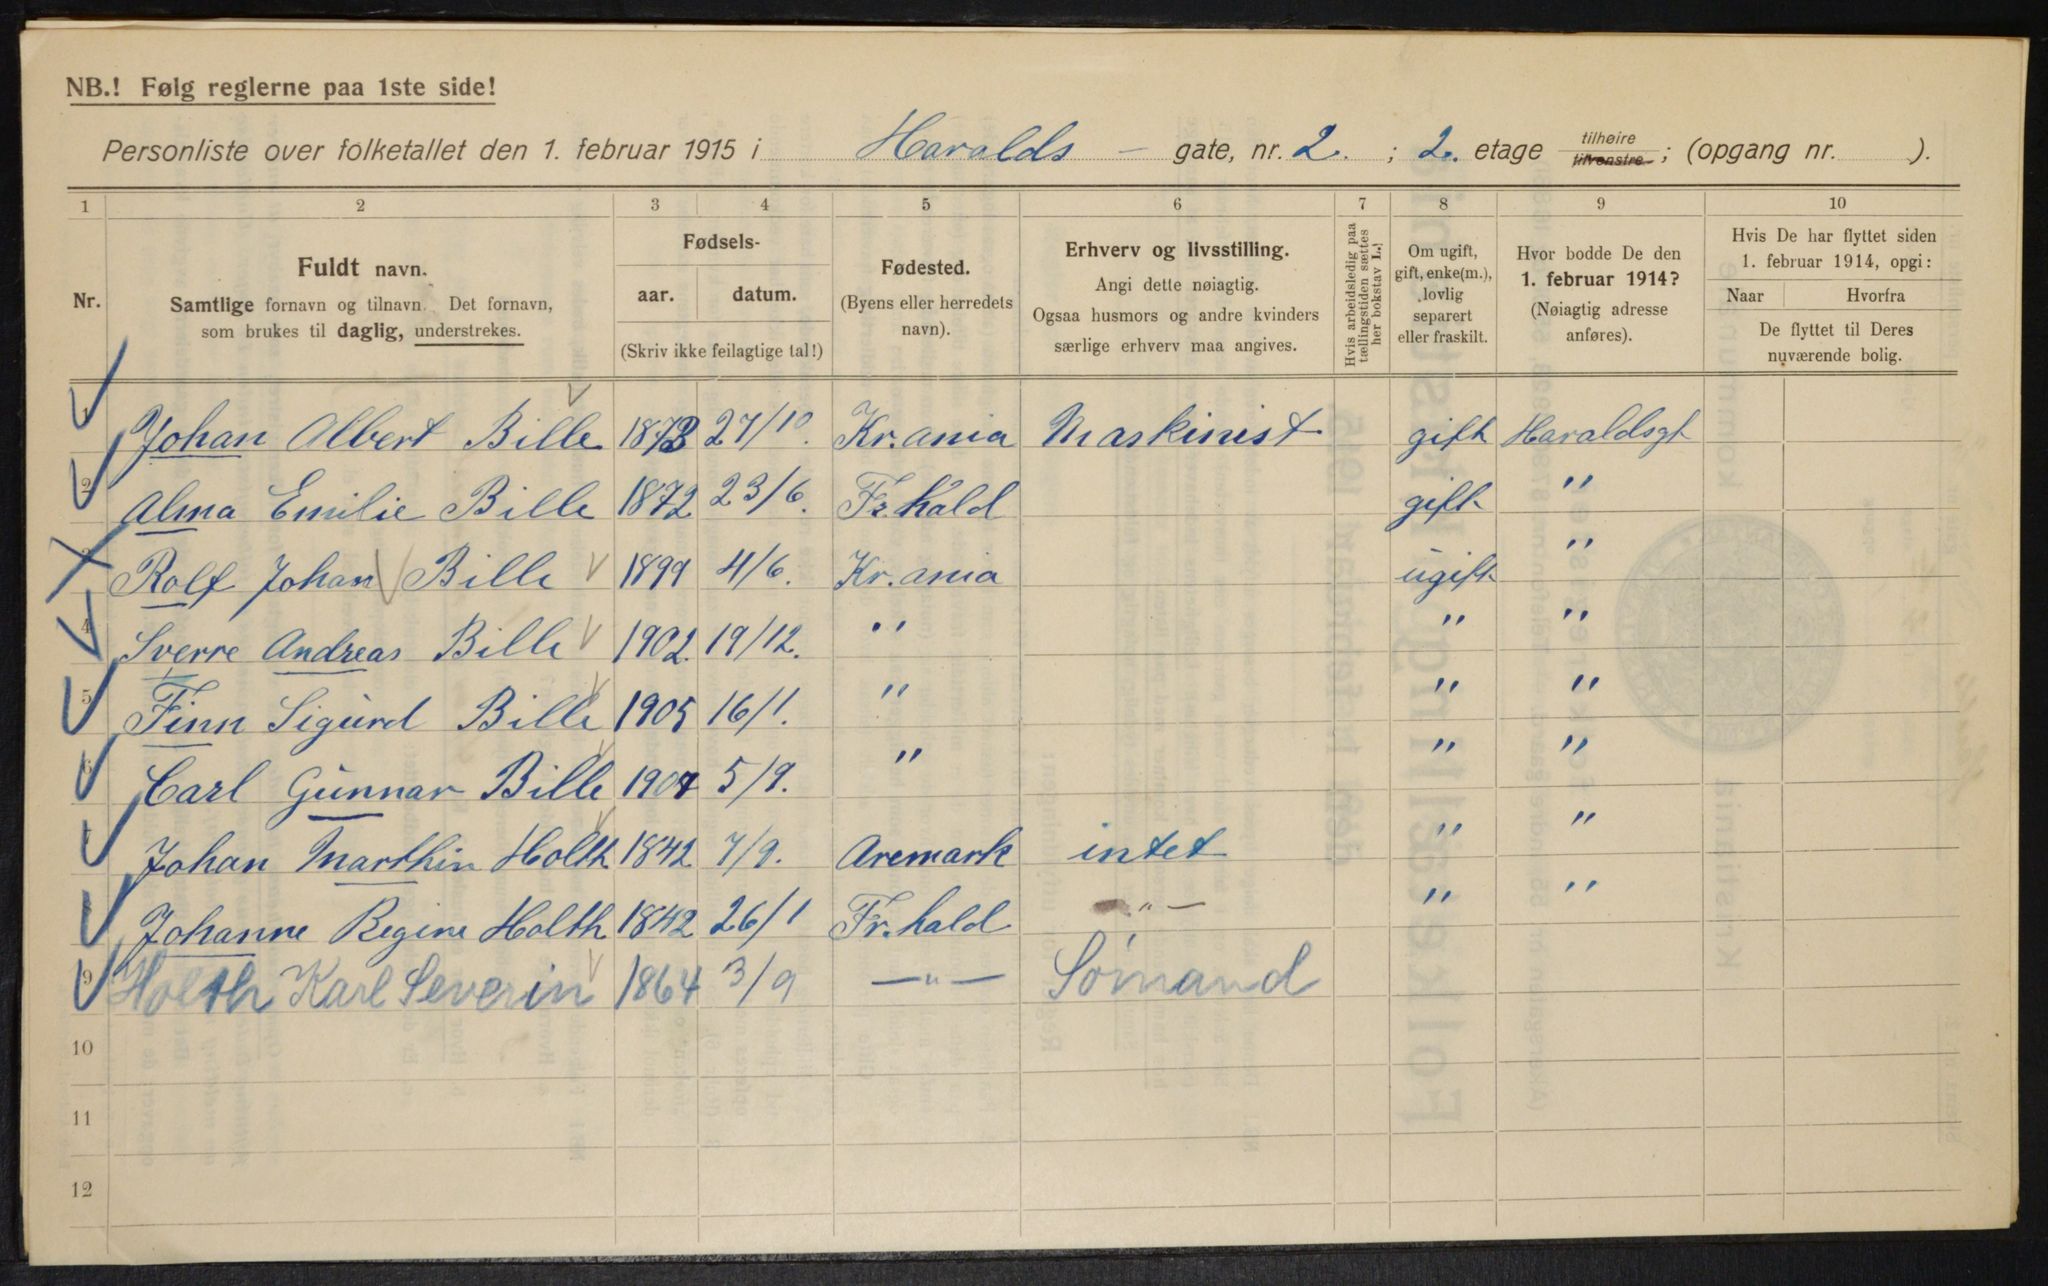 NB.! Følg reglerne paa 1ste side!
Personliste over folketallet den 1. februar 1915 i Haralds - gate, nr. 2. ; 2. etage tilhøire tilvenstre ; (opgang nr. ).
1 2 3 4 5 6 7 8 9 10
Nr.
Fuldt navn.
Samtlige fornavn og tilnavn. Det fornavn,
som brukes til daglig, understrekes.
Fødsels-
aar. datum.
(Skriv ikke feilagtige tal!)
Fødested.
(Byens eller herredets
navn).
Erhverv og livsstilling.
Angi dette nøiagtig.
Ogsaa husmors og andre kvinders
særlige erhverv maa angives.
Hvis arbeidsledig paa
tællingstiden sættes
her bokstav L.!
Om ugift,
gift, enke(m.),
lovlig
separert
eller fraskilt.
Hvor bodde De den
1. februar 1914?
(Nøiagtig adresse
anføres).
Hvis De har flyttet siden
1. februar 1914, opgi:
Naar Hvorfra
De flyttet til Deres
nuværende bolig.
1 Johan Albert Bille 1873 27/10. Kr.ania Maskinist gift Haraldsgt
2 Alma Emilie Bille 1872 23/6. Fr.hald gift "
3 Rolf Johan Bille 1899 4/6. Kr.ania ugift "
4 Sverre Andreas Bille 1902. 19/12. " " "
5 Finn Sigurd Bille 1905 16/1. " " "
6 Carl Gunnar Bille 1907 5/9. " " "
7 Johan Marthin Holth 1842 7/9. Aremark intet " "
8 Johanne Regine Holth 1842 26/1 Fr.hald -"- " "
9 Holth Karl Severin 1864 3/9 -"- Sømand
10
11
12